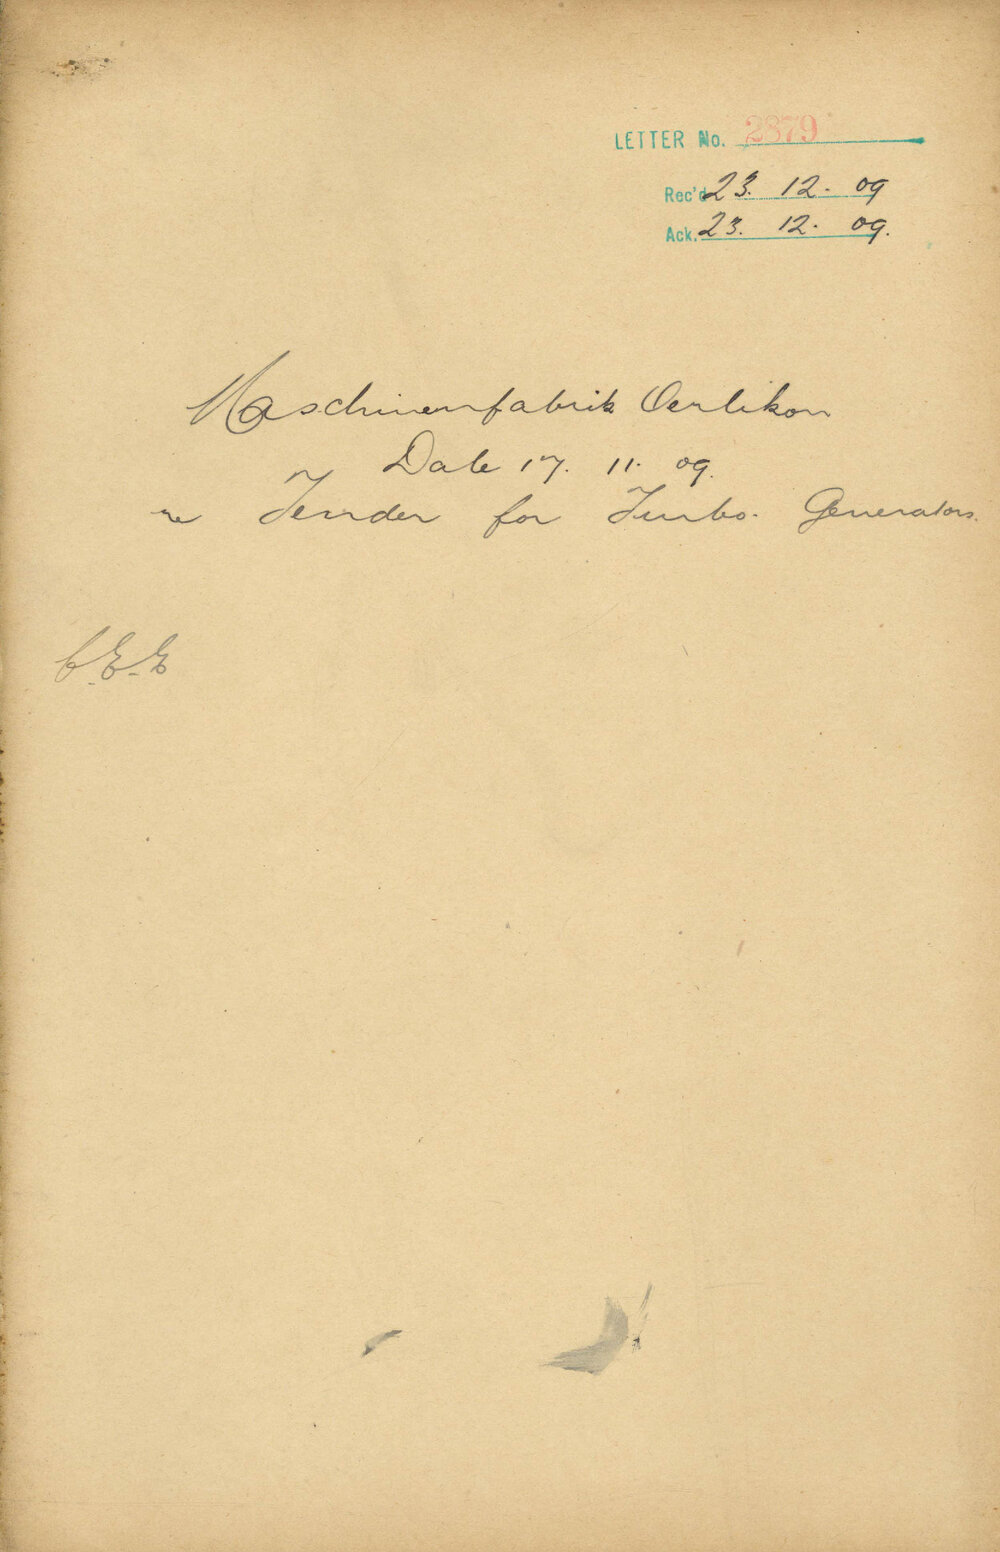 LETTER No. 2879
Rec'd 23. 12. 09
Ack. 23. 12. 09.
Maschinenfabrik Oerlikon
Date 17. 11. 09.
re Tender for Turbo. Generators.
C.E.E